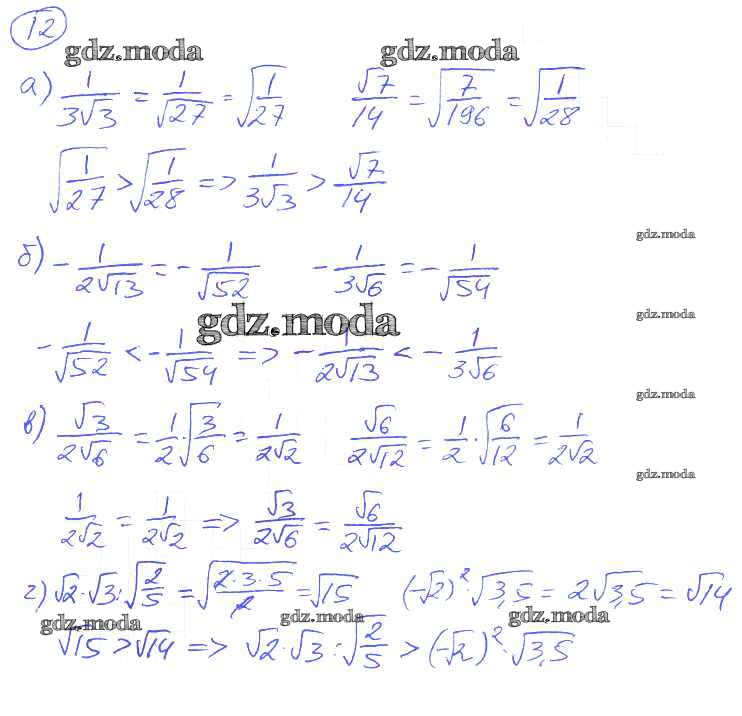 12
gdz.moda gdz.moda
а) 1/(3√3) = 1/√27 = √(1/27)   √7/14 = √(7/196) = √(1/28)
√(1/27) > √(1/28) => 1/(3√3) > √7/14
gdz.moda
б) -1/(2√13) = -1/√52   -1/(3√6) = -1/√54
gdz.moda gdz.moda
-1/√52 < -1/√54 => -1/(2√13) < -1/(3√6)
gdz.moda
в) √3/(2√6) = 1/2·√(3/6) = 1/(2√2)   √6/(2√12) = 1/2·√(6/12) = 1/(2√2)
gdz.moda
1/(2√2) = 1/(2√2) => √3/(2√6) = √6/(2√12)
г) √2·√3:√(2/5) = √(2·3·5/2) = √15   (-√2)²·√3,5 = 2√3,5 = √14
gdz.moda gdz.moda gdz.moda
√15 > √14 => √2·√3:√(2/5) > (-√2)²·√3,5